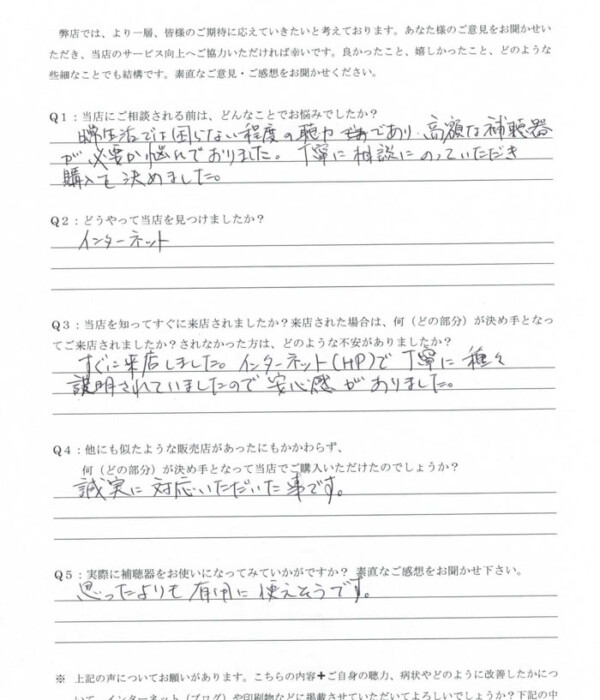 弊店では、より一層、皆様のご期待に応えていきたいと考えております。あなた様のご意見をお聞かせい
ただき、当店のサービス向上へご協力いただければ幸いです。良かったこと、嬉しかったこと、どのような
些細なことでも結構です。素直なご意見・ご感想をお聞かせください。
Q1：当店にご相談される前は、どんなことでお悩みでしたか？
生活では困らない程度の聴力であり、高額な補聴器
が必要か悩んでおりました。丁寧に相談にのっていただき
購入を決めました。
Q2：どうやって当店を見つけましたか？
インターネット
Q3：当店を知ってすぐに来店されましたか？来店された場合は、何（どの部分）が決め手となっ
てご来店されましたか？されなかった方は、どのような不安がありましたか？
すぐに来店しました。インターネット(HP)で丁寧に種々
説明されていましたので安心感がありました。
Q4：他にも似たような販売店があったにもかかわらず、
何（どの部分）が決め手となって当店でご購入いただけたのでしょうか？
誠実に対応いただいた事です。
Q5：実際に補聴器をお使いになってみていかがですか？ 素直なご感想をお聞かせ下さい。
思ったよりも有用に使えそうです。
※ 上記の声についてお願いがあります。こちらの内容+ご自身の聴力、病状やどのように改善したかにつ
いて、インターネット（ブログ）や印刷物などに掲載させていただいてよろしいでしょうか？下記の中